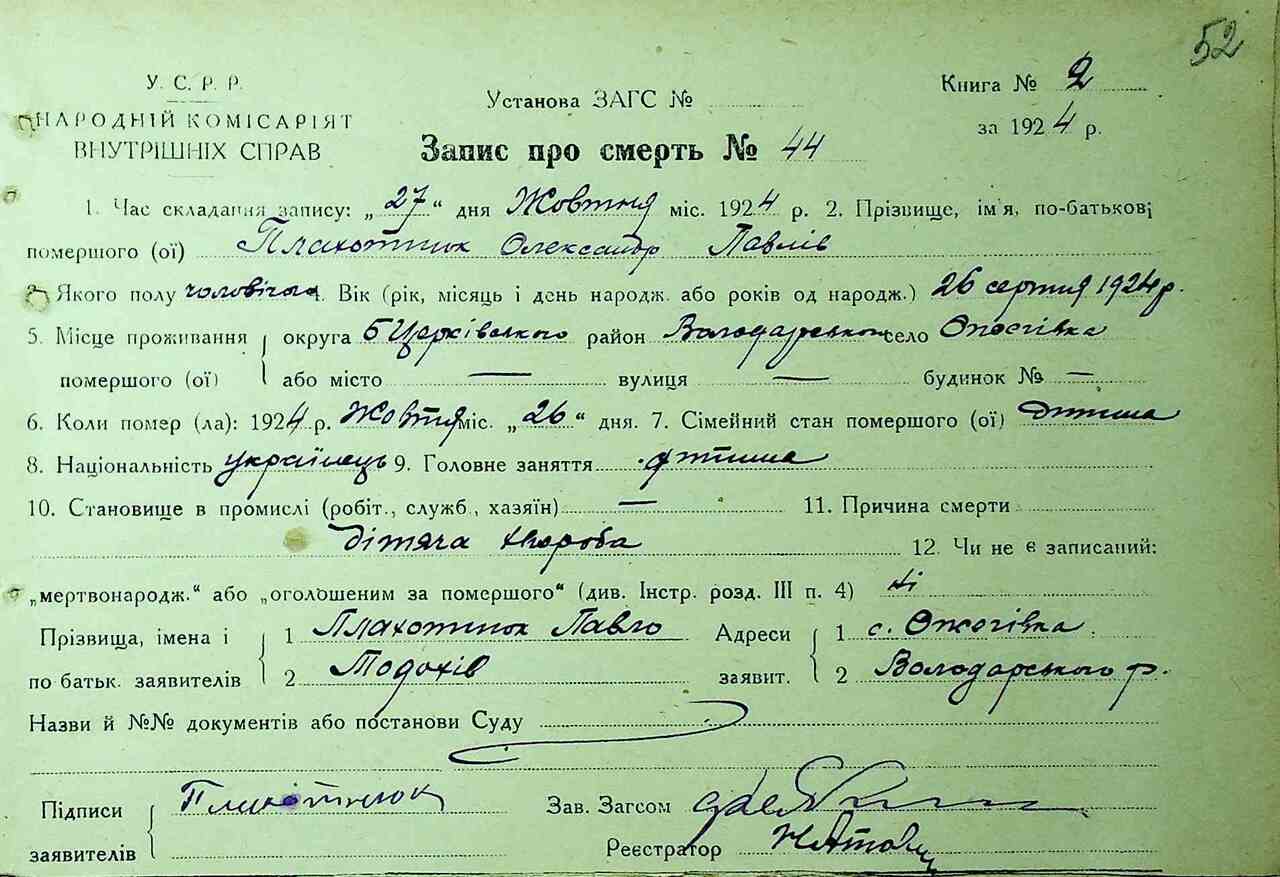 52
У. С. Р. Р.
НАРОДНІЙ КОМІСАРІЯТ
ВНУТРІШНІХ СПРАВ
Установа ЗАГС №
Книга № 2
за 1924 р.
Запис про смерть № 44
1. Час складання запису: „27“ дня Жовтня міс. 1924 р. 2. Прізвище, ім'я, по-батькові
помершого (ої) Плахотнюк Олександр Павлів
3. Якого полу чоловічого 4. Вік (рік, місяць і день народж. або років од народж.) 26 серпня 1924 р.
5. Місце проживання округа БЦерківського район Володарського село
помершого (ої) або місто — вулиця — будинок № —
6. Коли помер (ла): 1924 р. Жовтня міс. „26“ дня. 7. Сімейний стан помершого (ої) дитина
8. Національність українець 9. Головне заняття дитина
10. Становище в промислі (робіт., служб., хазяїн) — 11. Причина смерти
дітяча хвороба 12. Чи не є записаний:
„мертвонародж.“ або „оголошеним за помершого“ (див. Інстр. розд. III п. 4) ні
Прізвища, імена і 1 Плахотнюк Павло Адреси 1 с.
по батьк. заявителів 2 заявит. 2 Володарського р.
Назви й №№ документів або постанови Суду
Підписи Плахотнюк Зав. Загсом
заявителів Реєстратор